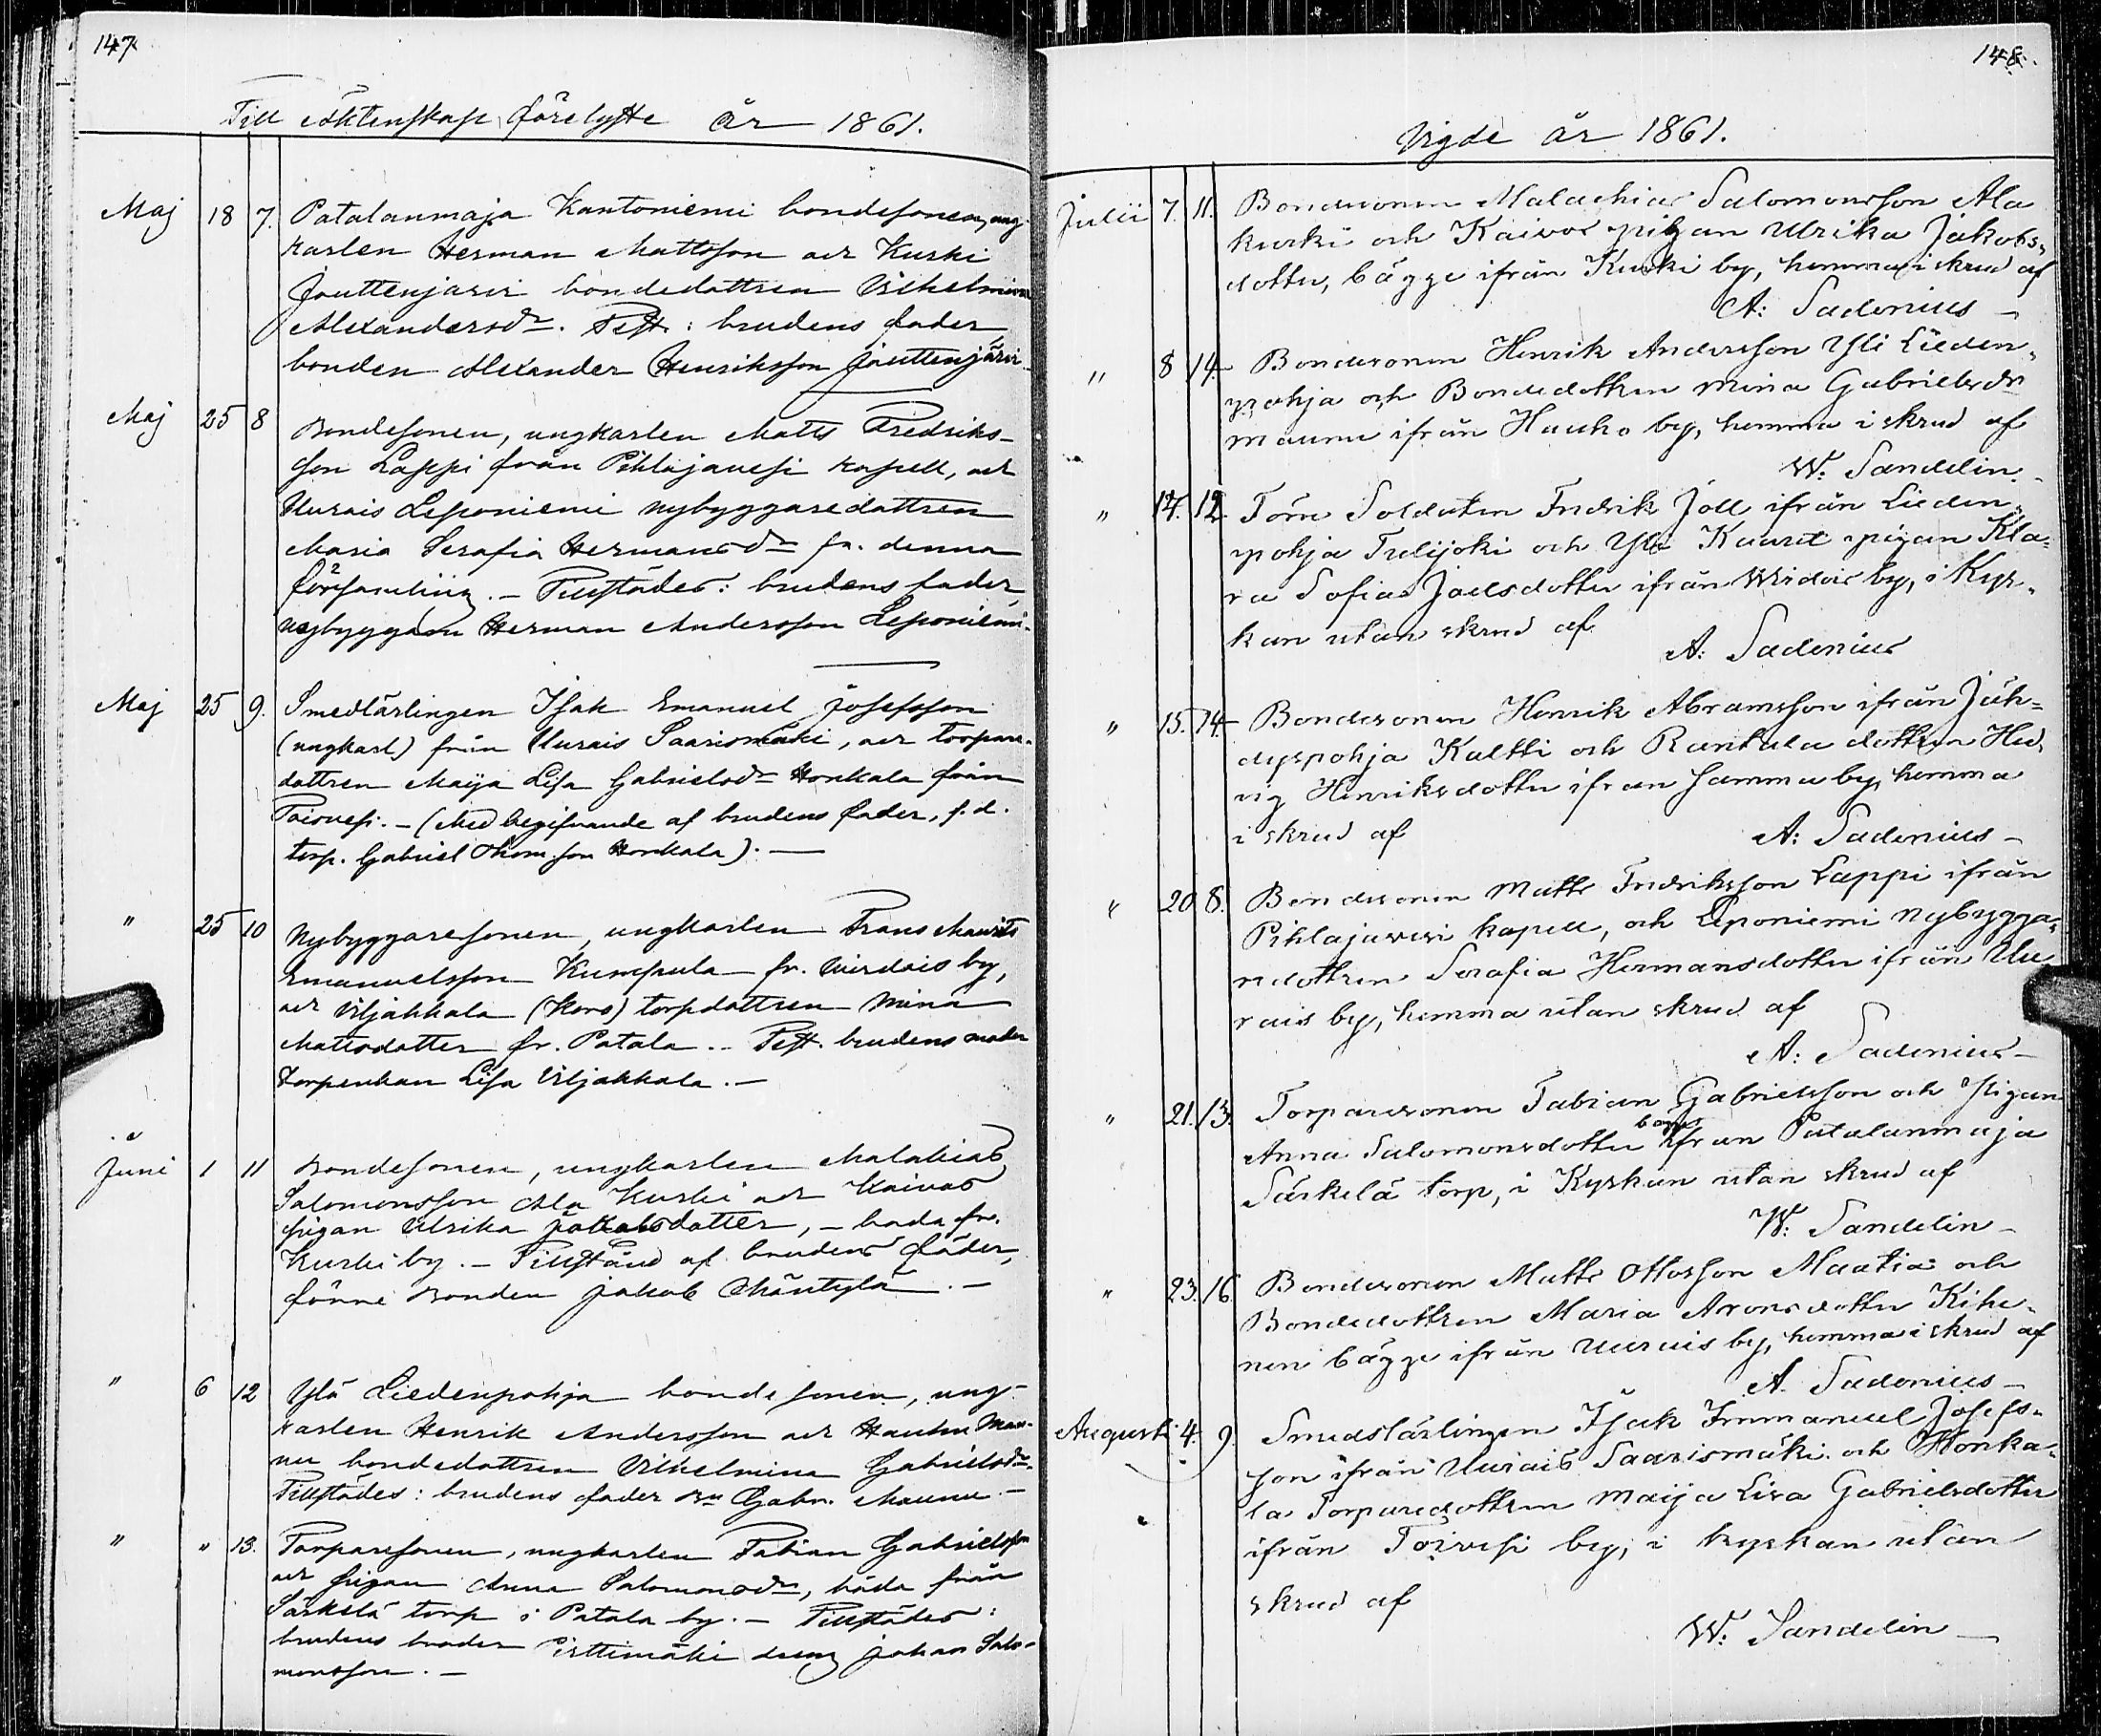 147
Till Äktenskap förelyste År 1861.
Maj 18 7. Patalanmaja Kantoniemi bondesonen, ung-
karlen Herman Mattsson och Kurki
Jouttenjärvi bondedottren Vilhelmina
Alexandersdr. Tillst: brudens fader
bonden Alexander Henriksson Jouttenjärvi.
Maj 25 8 Bondesonen, ungkarlen Matts Fredriks-
son Lappi från Pihlajavesi kapell, och
Uurais Leponiemi nybyggaredottren
Maria Serafia Hermansdr fr. denna
församling. – Tillstädes: brudens fader,
nybyggaren Herman Andersson Leponiemi.
Maj 25 9. Smedlärlingen Isak Emanuel Josefsson
(ungkarl) från Uurais Saarismäki, och torpare-
dottren Maija Lisa Gabrielsdr Honkala från
Toivesi. – (Med begifvande af brudens fader, f.d.
torp. Gabriel Thomson Honkala). —
" 25 10 Nybyggaresonen, ungkarlen Frans Maurits
Emanuelsson Kumpula fr. Virdois by,
och Viljakkala (Koro) torpdottren Mina
Mattsdotter fr. Patala. – Tillst. brudens moder
torpenkan Lisa Viljakkala. —
Juni 1 11 Bondesonen, ungkarlen Malakias
Salomonsson Ala Kurki och Kaivos
pigan Ulrika Jakobsdotter, – bada fr.
Kurki by. – Tillstånd af brudens fader,
förre Bonden Jakob Mäntylä. —
" 6 12 Ylä Liedenpohja bondesonen, ung-
karlen Henrik Andersson och Hauhu Mau-
nu bondedottren Vilhelmina Gabrielsdr.
Tillstädes: brudens fader Bn Gabr. Maunu. —
" " 13. Torparesonen, ungkarlen Fabian Gabrielsson
och pigan Anna Salomonsdr, båda från
Särkelä torp i Patala by. – Tillstädes:
brudens broder Pirttimäki dräng Johan Salo-
monsson. —
148.
Vigde år 1861.
Julii 7. 11. Bondesonen Malachias Salomonsson Ala
kurki och Kaivos pigan Ulrika Jakobs-
dotter, bägge ifrån Kurki by, hemma i skrud af
A: Sadenius —
" 8 14. Bondesonen Henrik Andersson Yli Lieden-
pohja och Bondedottren Mina Gabrielsdr
Maunu ifrån Hauho by, hemma i skrud af
W: Sandelin. —
" 14. 12 Förre Soldaten Fredrik Joll ifrån Lieden-
pohja Tulijoki och Yli Kaard pigan Kla-
ra Sofia Joelsdotter ifrån Wirdois by, i Kyr-
kan utan skrud af
A: Sadenius
" 15. 14 Bondesonen Henrik Abramsson ifrån Jäh-
dyspohja Kaltti och Rantala dottren Hed-
vig Henriksdotter ifran samma by, hemma
i skrud af A: Sadenius —
" 20 8. Bondesonen Matts Fredriksson Lappi ifrån
Pihlajavesi kapell, och Leponiemi nybygga-
redottren Serafia Hermansdotter ifrån Uu-
rais by, hemma utan skrud af
A: Sadenius —
" 21. 13. Torparesonen Fabian Gabrielsson och Pigan
Anna Salomonsdotter bägge ifran Patalanmaja
Särkelä torp, i Kyrkan utan skrud af
W: Sandelin —
" 23. 16. Bondesonen Matts Ottosson Maatia och
Bondedottren Maria Aronsdotter Kihe-
nen bägge ifrån Uurais by, hemma i skrud af
A. Sadenius —
Augusti 4. 9. Smedslärlingen Isak Immanuel Josefs-
son ifrån Uurais Saarismäki och Honka-
la Torparedottren Maija Lisa Gabrielsdotter
ifrån Toivesi by, i kyrkan utan
skrud af
W: Sandelin —